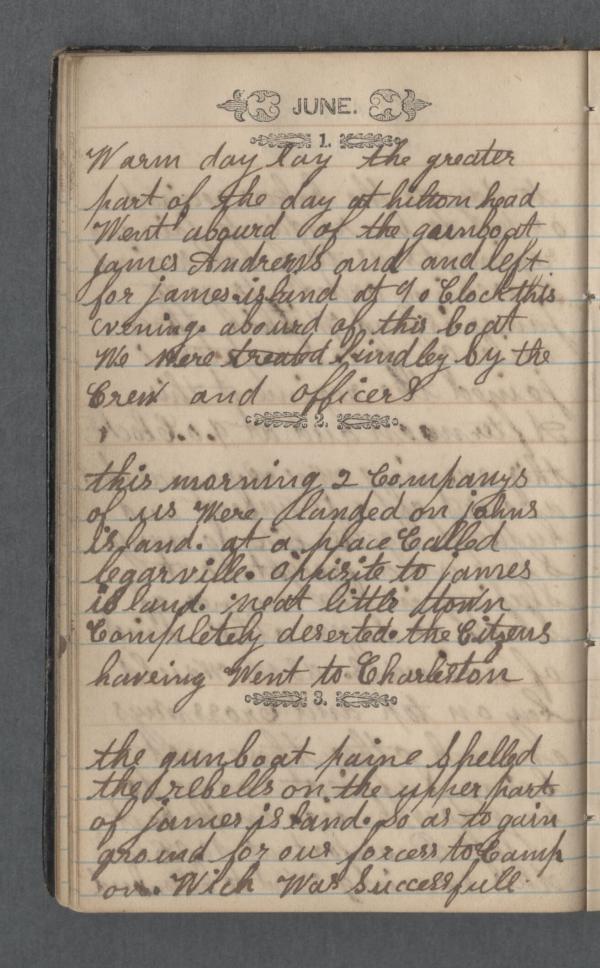 JUNE.
1.
Warm day lay the greater
part of the day at hilton head
Went abourd of the gunboat
James Andrews and and left
for james island at 9 o Clock this
evening. abourd of this boat
We were treated kindley by the
Crew and officers
2.
this morning 2 Companys
of us Were landed on johns
island. at a place Called
legarville. oppisite to james
island. neat little town
Completely deserted. the Citzens
haveing Went to Charleston
3.
the gunboat paine Shelled
the rebells on the upper part
of james island. so as to gain
ground for our forcess to Camp
on. Wich Was Successfull